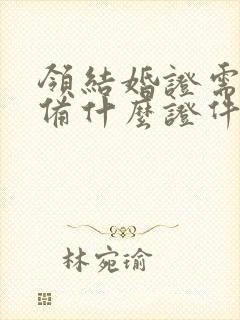 領結婚證需
備什麼證件
林宛瑜